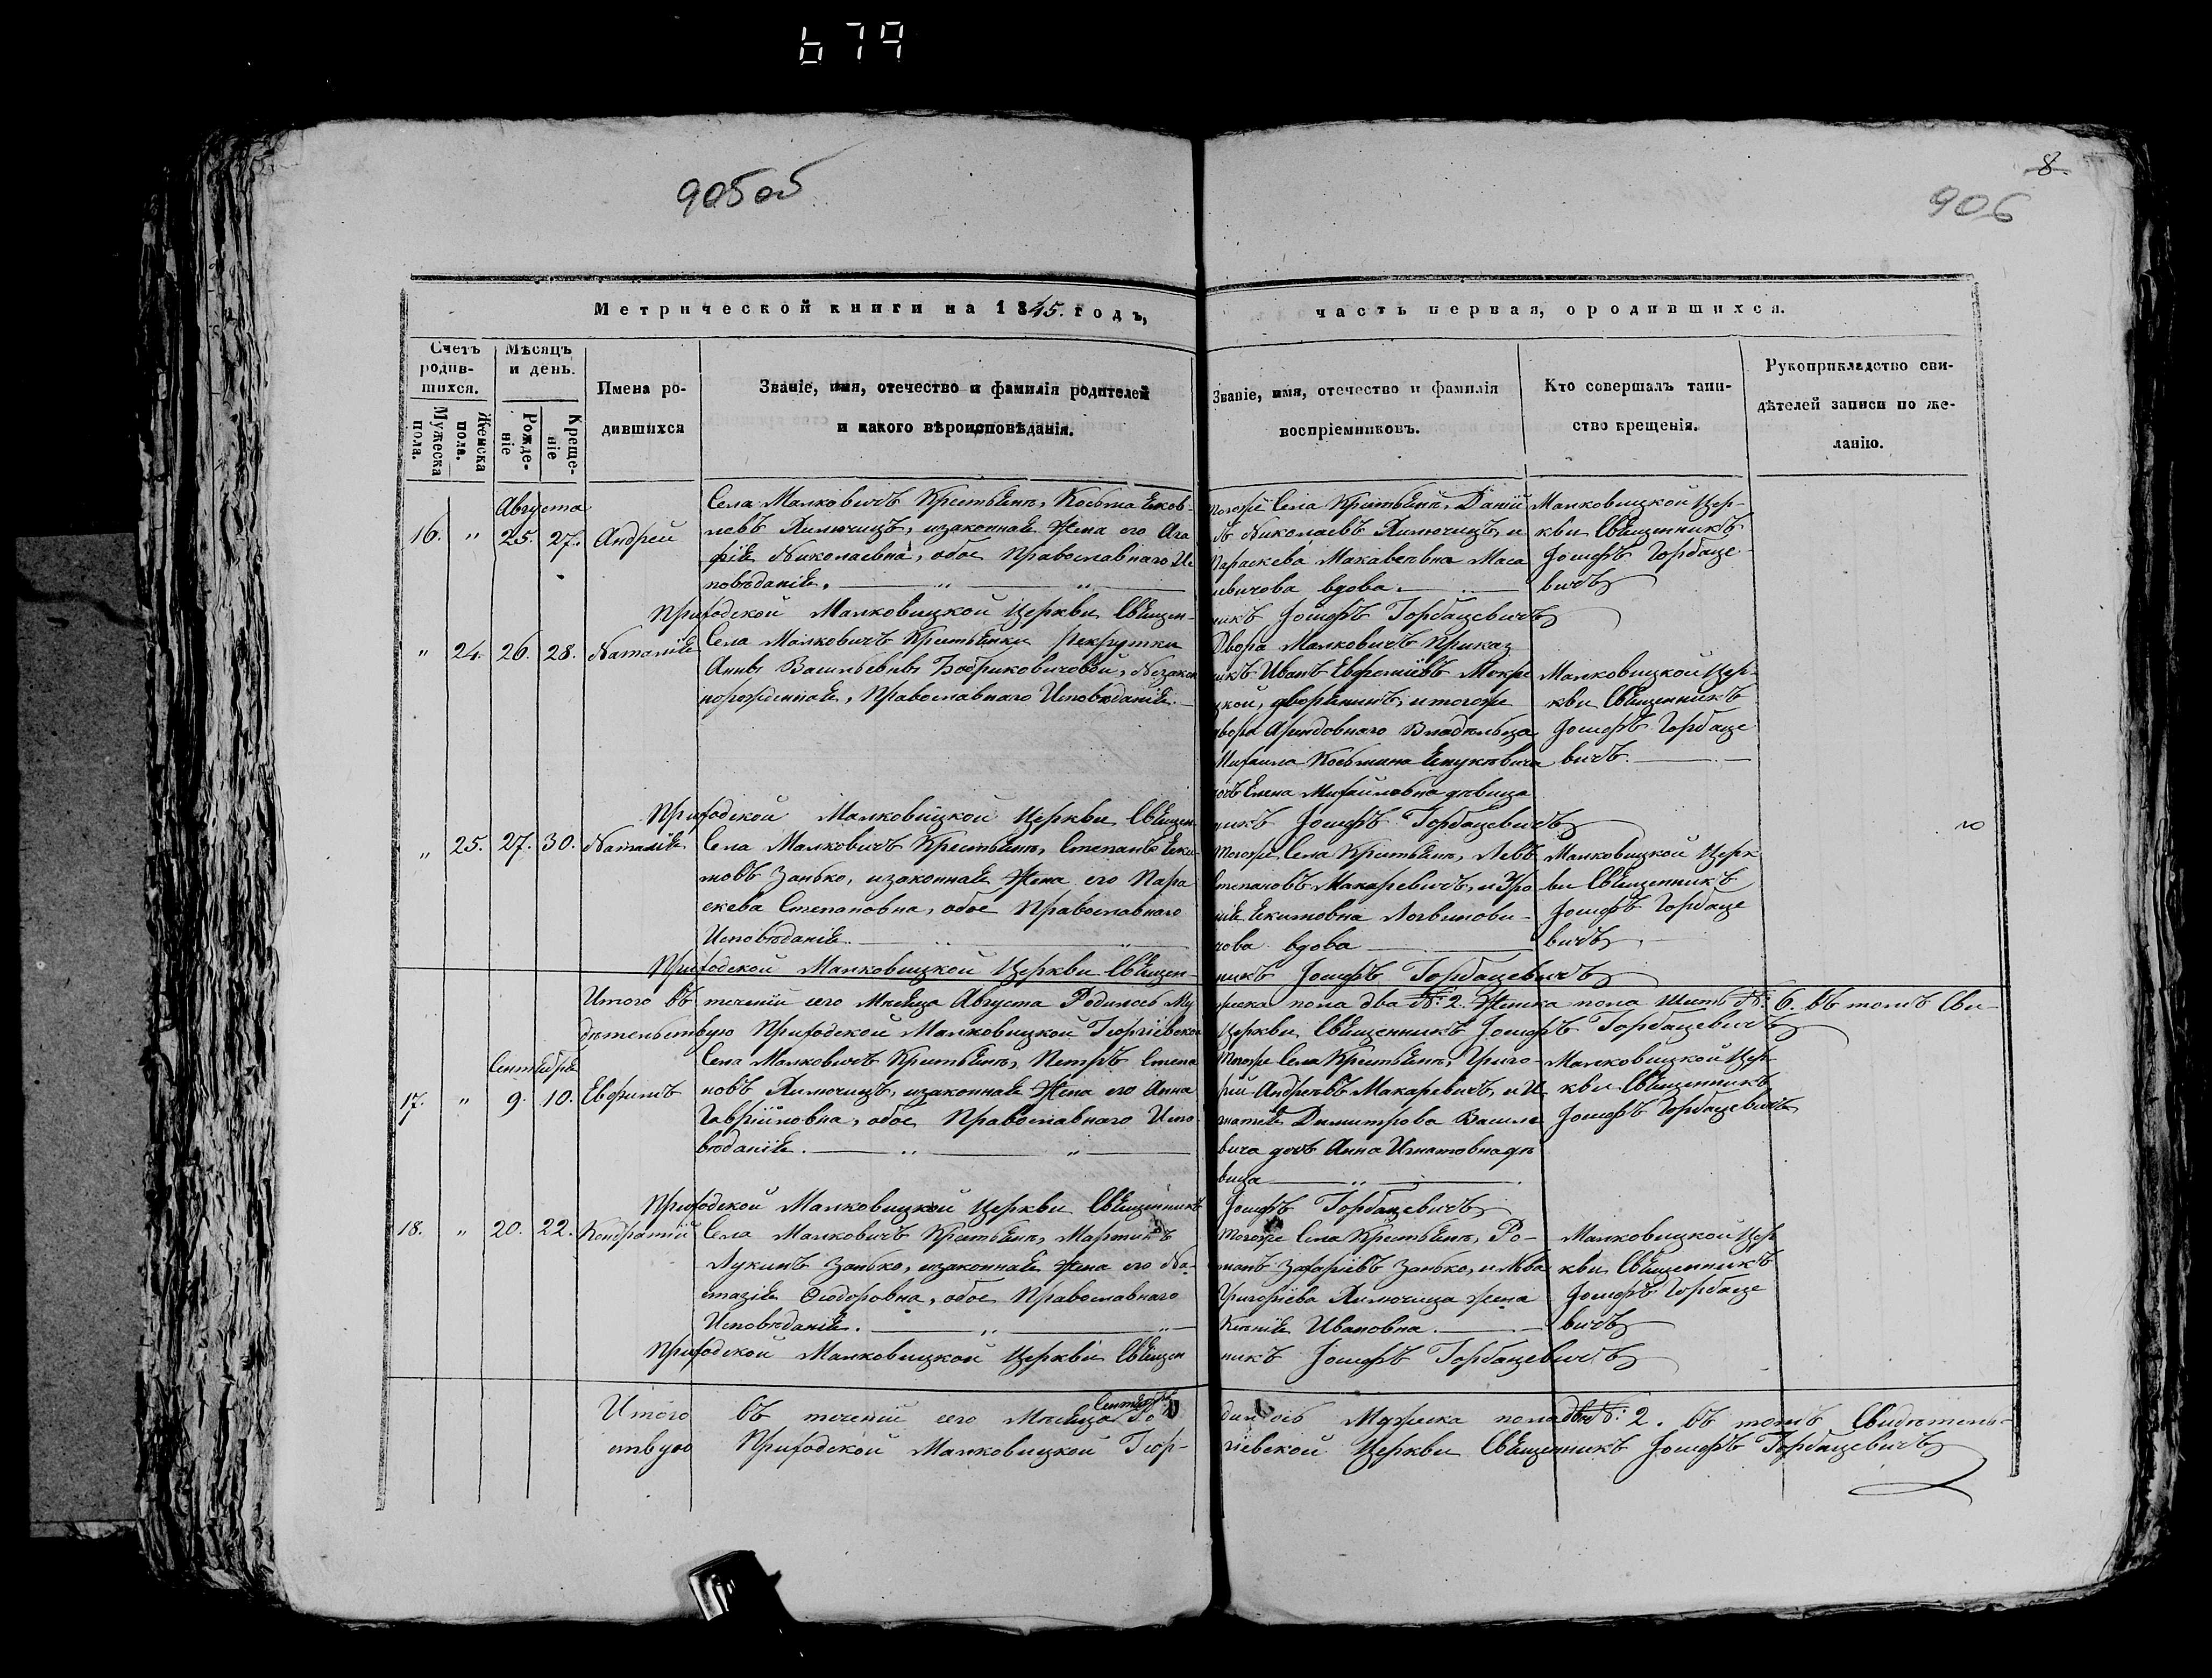 679
905об
8.
906
Метрической книги на 1845. годъ,
часть первая, ородившихся.
Счетъ родив-шихся.
Мужеска пола.
Женска пола.
Мѣсяцъ и день.
Рожде-ніе
Креще-ніе
Имена ро-
дившихся
Званіе, имя, отечество и фамилія родителей
и какого вѣроисповѣданія.
Званіе, имя, отечество и фамилія
воспріемниковъ.
Кто совершалъ таин-
ство крещенія.
Рукоприкладство сви-
дѣтелей записи по же-
ланію.
Августа
16. " 25. 27. Андрей
Села Малковичъ Крестьянъ, Косьма Яков-
левъ Хилючицъ, изаконная Жена его Ага
фія Николаевна, обое Православнаго Ис
повѣданія.
Тогоже Села Крестьянъ, Даніи
лъ Николаевъ Хилючицъ, и
Параскева Макавеевна Маса
вдова
Малковицкой Цер-
кви Священникъ
Іосифъ Горбаце-
вичъ
Приходской Малковицкой Церкви Священ-
никъ Іосифъ Горбацевичъ
" 24. 26. 28. Наталія
Села Малковичъ Крестьянки рекрутки
Анны Васильевны Бобриковичовой, Незакон
норожденная, Православнаго Исповѣданія.
Двора Малковичъ Приказ
чикъ Иванъ Мокре
цкой, дворянинъ, итогоже
двора Арендовнаго Владѣльца
Михаила Косьмина Януковича
дочь Елена Михайловна дѣвица
Малковицкой Цер-
кви Священникъ
Іосифъ Горбаце
вичъ.
Приходской Малковицкой Церкви Священ
никъ Іосифъ Горбацевичъ
" 25. 27. 30. Наталія
Села Малковичъ Крестьянъ, Степанъ Яки-
мовъ Занько, изаконная Жена его Пара
скева Степановна, обое Православнаго
Исповѣданія.
Тогоже Села Крестьянъ, Левъ
Степановъ Макаревичъ, и Зро
Якимовна Логвинови-
чова вдова
Малковицкой Церк
ви Священникъ
Іосифъ Горбаце
вичъ
Приходской Малковицкой Церкви Священ-
никъ Іосифъ Горбацевичъ
Итого въ теченіи сего Мѣсяца Августа Родилось Му
жеска пола два №: 2. Женска пола шесть №: 6. въ томъ Сви-
дѣтельствую Приходской Малковицкой Георгіевской
Церкви Священникъ Іосифъ Горбацевичъ
Сентября
17. " 9. 10. Евфимъ
Села Малковичъ Крестьянъ, Петръ Степа
новъ Хилючицъ, изаконная Жена его Анна
Гавріиловна, обое Православнаго Испо-
вѣданія.
Тогоже Села Крестьянъ, Григо-
рій Андреевъ Макаревичъ, и И
гнатія Димитрова Василе
вича дочь Анна Игнатовна дѣ
вица
Малековицкой Цер
кви Священникъ
Іосифъ Горбацевичъ
Приходской Малковицкой Церкви Священникъ
Іосифъ Горбацевичъ
18. " 20. 22. Кондратій
Села Малковичъ Крестьянъ, Мартинъ
Лукинъ Занько, изаконная Жена его На
стазія Ѳеодоровна, обое Православнаго
Исповѣданія.
Тогоже Села Крестьянъ, Ро-
манъ Захаріевъ Занько, и Льва
Григоріева Хилючица жена
Ксенія Ивановна
Малковицкой Цер
кви Священникъ
Іосифъ Горбаце
вичъ
Приходской Малковицкой Церкви Священ
никъ Іосифъ Горбацевичъ
Итого въ теченіи сего Мѣсяца Сентября Ро
дилось Мужеска пола два №: 2. въ томъ Свидѣтель-
ствую Приходской Малковицкой Геор-
гіевской Церкви Священникъ Іосифъ Горбацевичъ